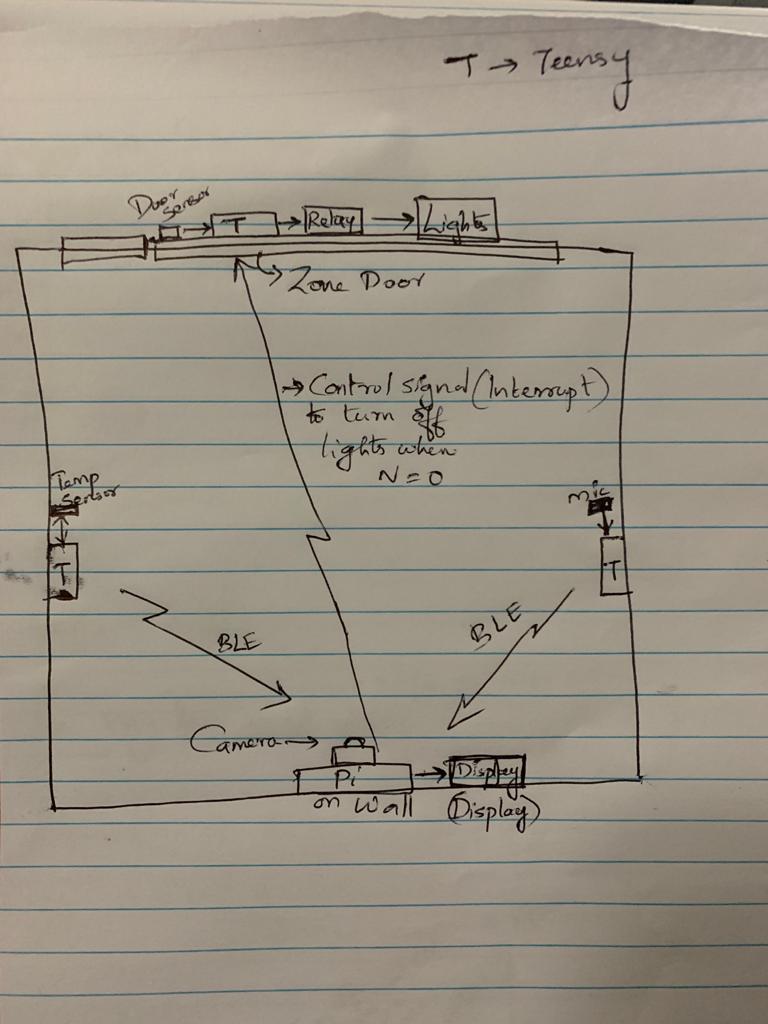 T → Teensy
Door
Sensor
T → Relay → Lights
Zone Door
→ Control signal (Interrupt)
to turn off
lights when
N = 0
Temp
Sensor
mic
T
T
BLE
BLE
Camera →
Pi → Display
on Wall
(Display)